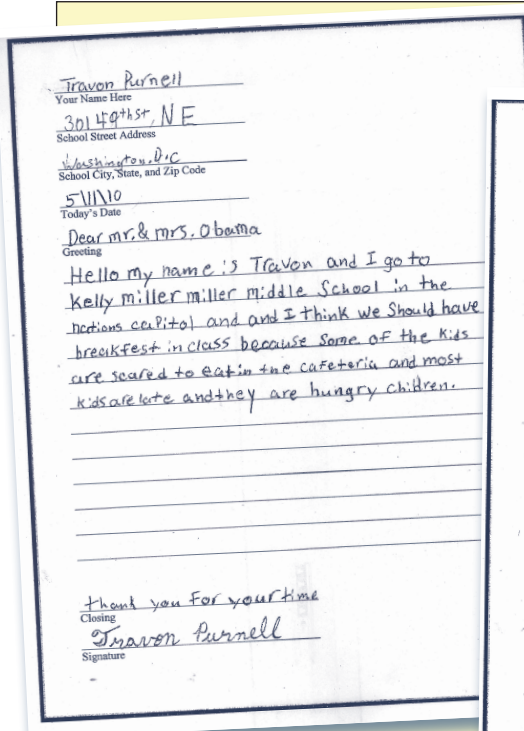 Travon Purnell
Your Name Here
301 49th st, NE
School Street Address
Washington, D.C
School City, State, and Zip Code
5\11\10
Today's Date
Dear mr. & mrs. Obama
Greeting
Hello my name is Travon and I go to
Kelly miller miller middle School in the
nations capitol and and I think we should have
breakfest in class because some of the kids
are scared to eat in the cafeteria and most
kids are late and they are hungry children.
thank you For your time
Closing
Travon Purnell
Signature